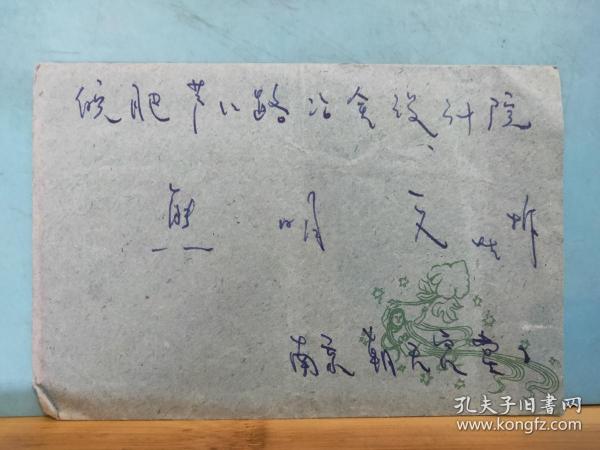 皖肥芜公路冶金设计院
熊 明 文 共拆
南京朝天宫
孔夫子旧书网
www.kongfz.com